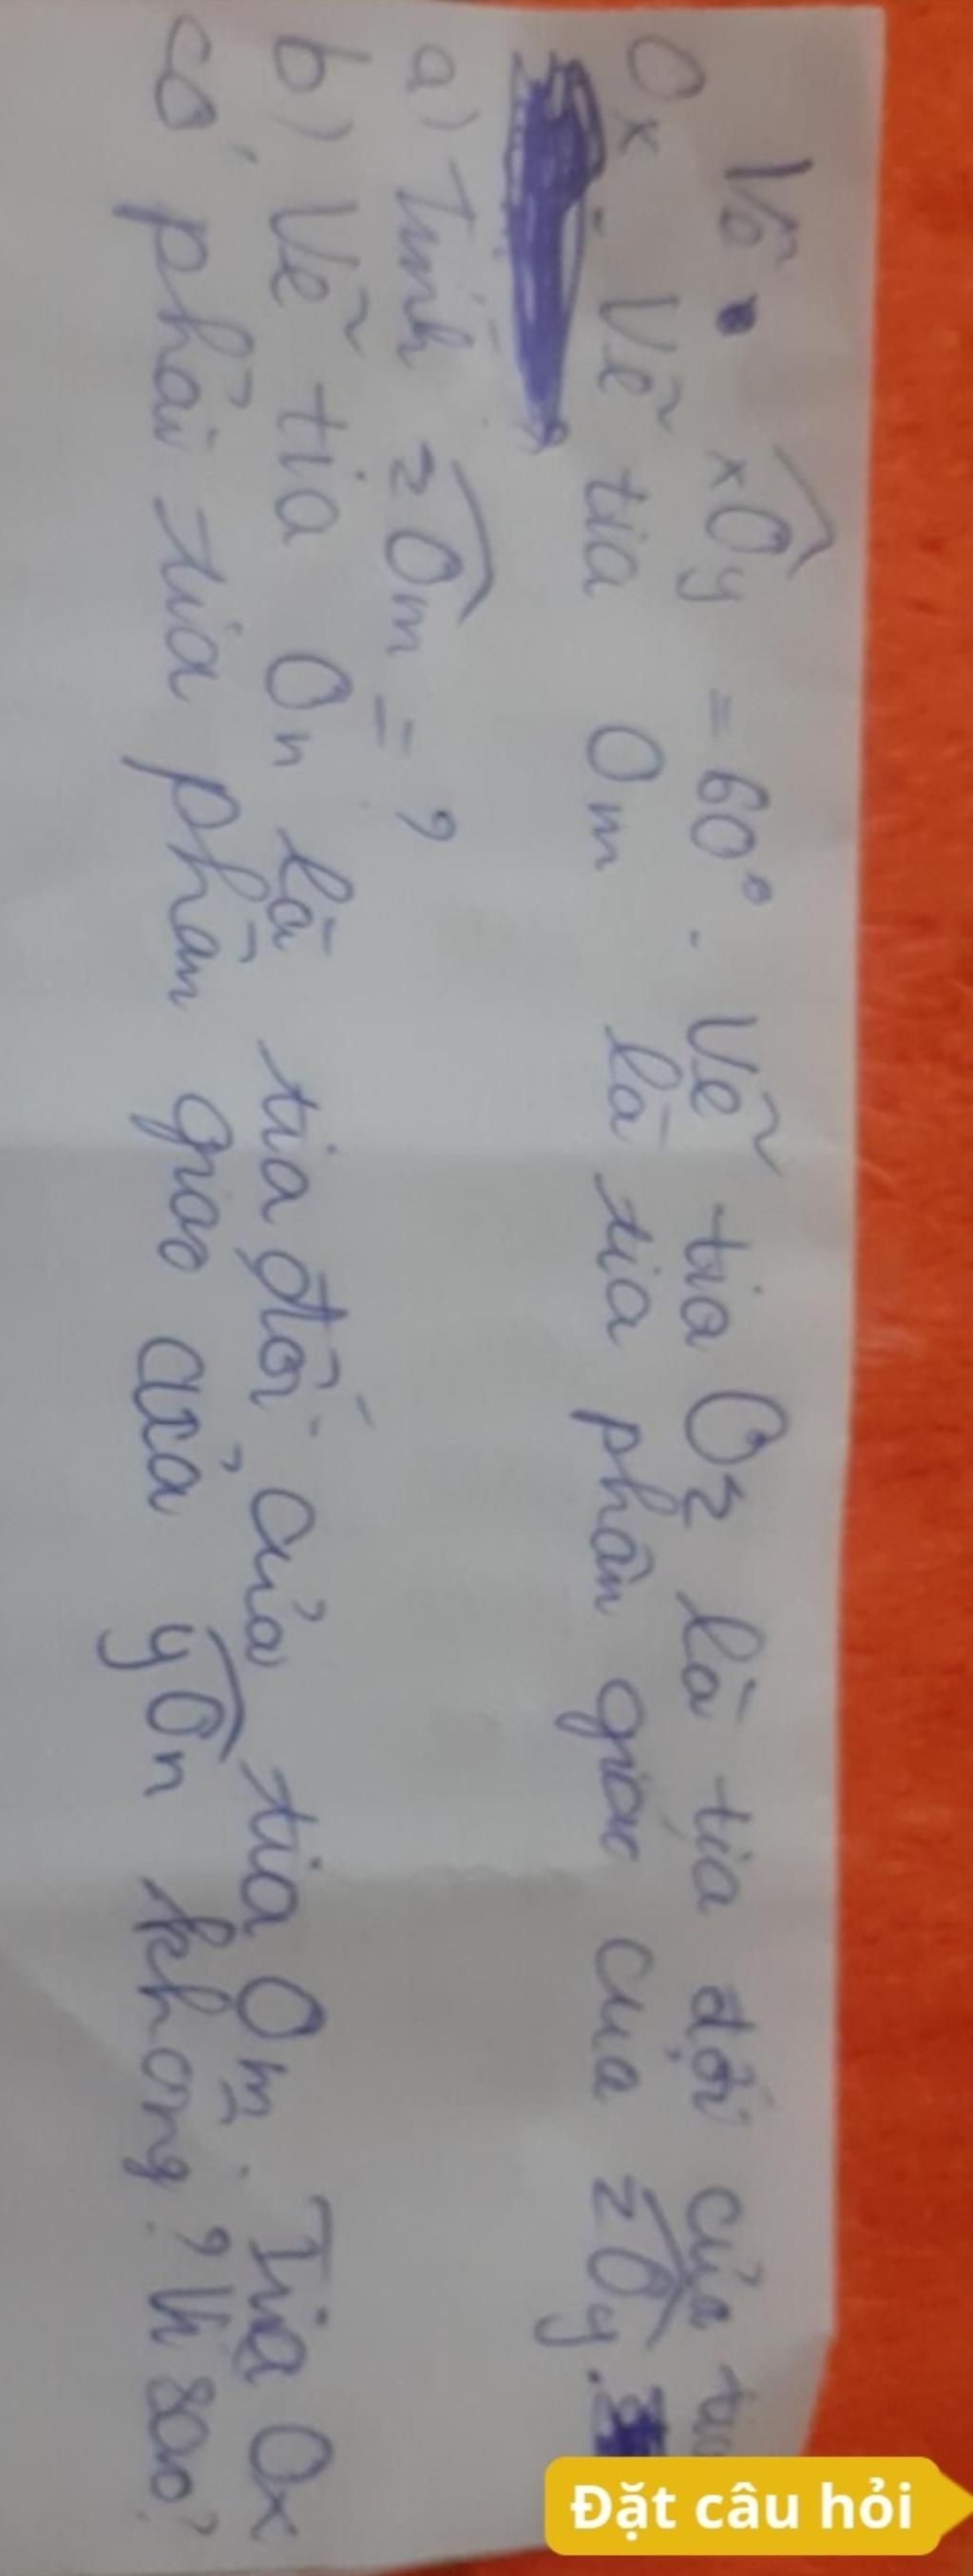 Vẽ xOy = 60°. Vẽ tia Oz là tia đối của tia
Ox. Vẽ tia Om là tia phân giác của zOy.
a) Tính zOm = ?
b) Vẽ tia On là tia đối của tia Om. Tia Ox
có phải tia phân giao của yOn không? Vì sao?
Đặt câu hỏi